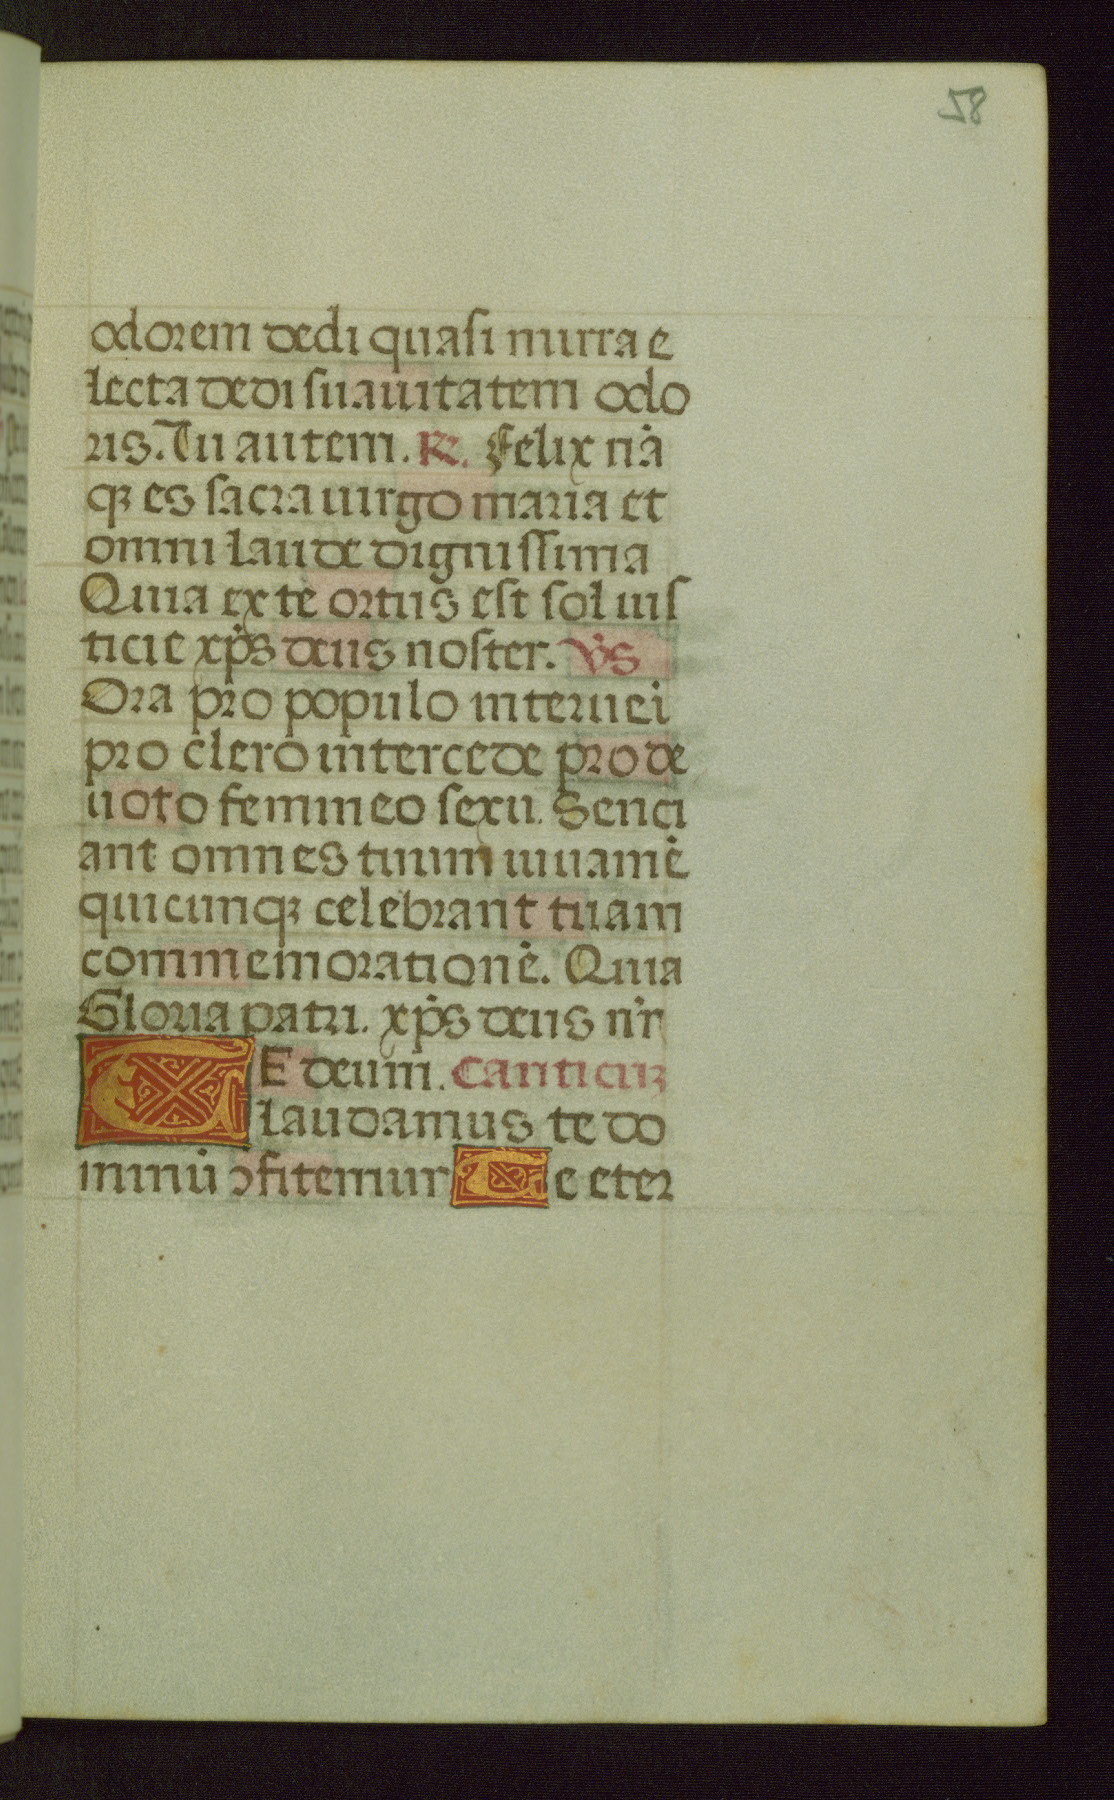 58
odorem dedi quasi mirra e
lecta dedi suauitatem odo
ris. Tu autem. R. Felix nā
qꝫ es sacra uirgo maria et
omni laude dignissima
Quia ex te ortus est sol uis
ticie xp̄s deus noster. Vs̄
Ora pro populo interuei
pro clero intercede pro de
uoto femineo sexu. Senci
ant omnes tuum iuuamē
quicunqꝫ celebrant tuam
commemorationē. Quia
Gloria patri. xp̄s deus nr̄
TE deum. Canticuꝫ
laudamus te do
minū ↄfitemur Te eter